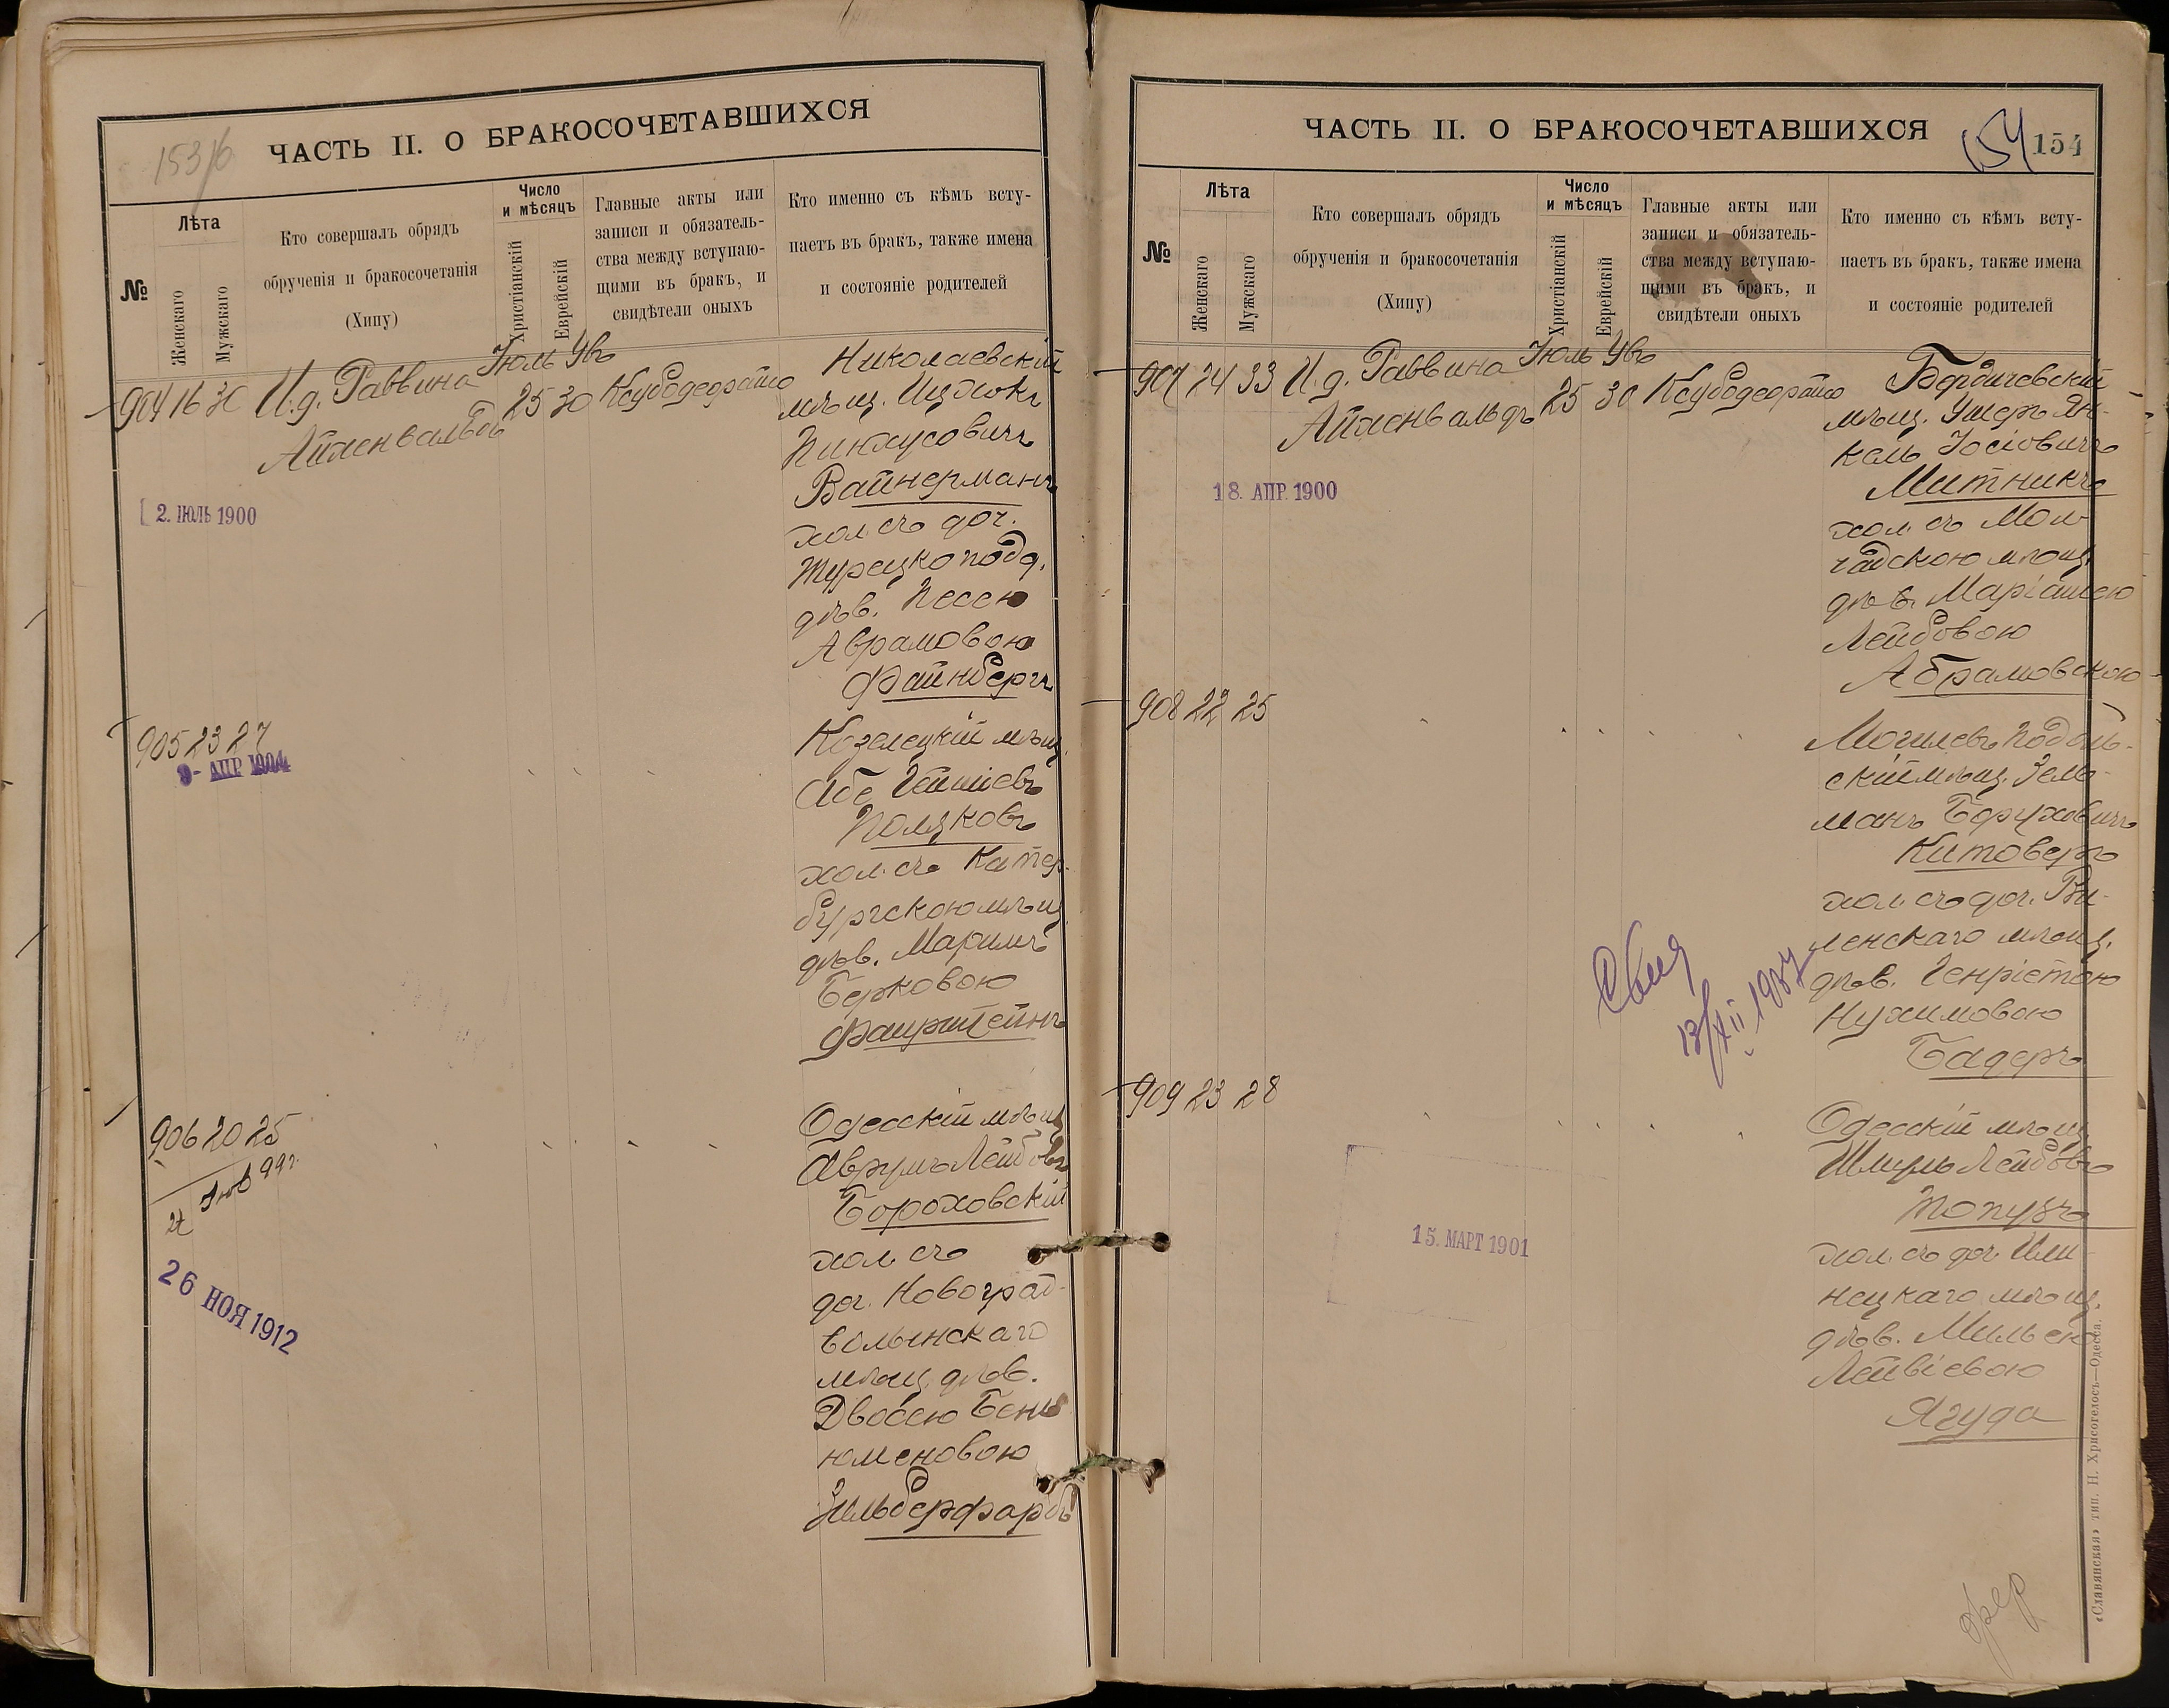 153/б
ЧАСТЬ II. О БРАКОСОЧЕТАВШИХСЯ
№
Лѣта
Женскаго
Мужскаго
Кто совершалъ обрядъ
обрученія и бракосочетанія
(Хипу)
Число
и мѣсяцъ
Христіанскій
Еврейскій
Главные акты или
записи и обязатель-
ства между вступаю-
щими въ бракъ, и
свидѣтели оныхъ
Кто именно съ кѣмъ всту-
паетъ въ бракъ, также имена
и состояніе родителей
904 16 30 И.д. Раввина
Айхенвальдъ
Іюль Увъ
25 30
Николаевскій
мѣщ. Ицхокъ
Пинхусовичъ
Вайнерманъ
хол. съ доч.
Турецкопод.
дѣв. Песею
Аврамовою
Файнбергъ
2. ІЮЛЬ 1900
905 23 27
9- АПР 1904
Козелецкій мѣщ.
Абе
Поляковъ
хол. съ Катер-
бургскою мѣщ.
дѣв.
Берковою
906 20 25
26 НОЯ 1912
Одесскій мѣщ.
Аврумъ Лейбовъ
Бороховскій
хол. съ
доч. Новоград-
волынскаго
мѣщ. дѣв.
Двосею Бень-
юменовою
Зильберфарбъ
154
154
ЧАСТЬ II. О БРАКОСОЧЕТАВШИХСЯ
№
Лѣта
Женскаго
Мужскаго
Кто совершалъ обрядъ
обрученія и бракосочетанія
(Хипу)
Число
и мѣсяцъ
Христіанскій
Еврейскій
Главные акты или
записи и обязатель-
ства между вступаю-
щими въ бракъ, и
свидѣтели оныхъ
Кто именно съ кѣмъ всту-
паетъ въ бракъ, также имена
и состояніе родителей
907 24 33 И.д. Раввина
Айхенвальдъ
Іюль Увъ
25 30
Бердичевскій
мѣщ. Ушеръ Ян-
кель Іосіовичъ
Митникъ
хол. съ Мол-
чадскою мѣщ.
дѣв. Маріашею
Лейбовою
Абрамовскою
18. АПР. 1900
908 22 25
Могилевъ Подоль-
скій мѣщ. Зель-
манъ Боруховичъ
Китоверъ
хол. съ доч. Ви-
ленскаго мѣщ.
дѣв. Генріетою
Нухимовою
Бадеръ
909 23 28
15. МАРТ 1901
Одесскій мѣщ.
Шмуль Лейбовъ
Топузъ
хол. съ доч. Или-
нецкаго мѣщ.
дѣв.
Лейвіевою
Ягуда
«Славянская» тип. Н. Хрисогелосъ—Одесса.